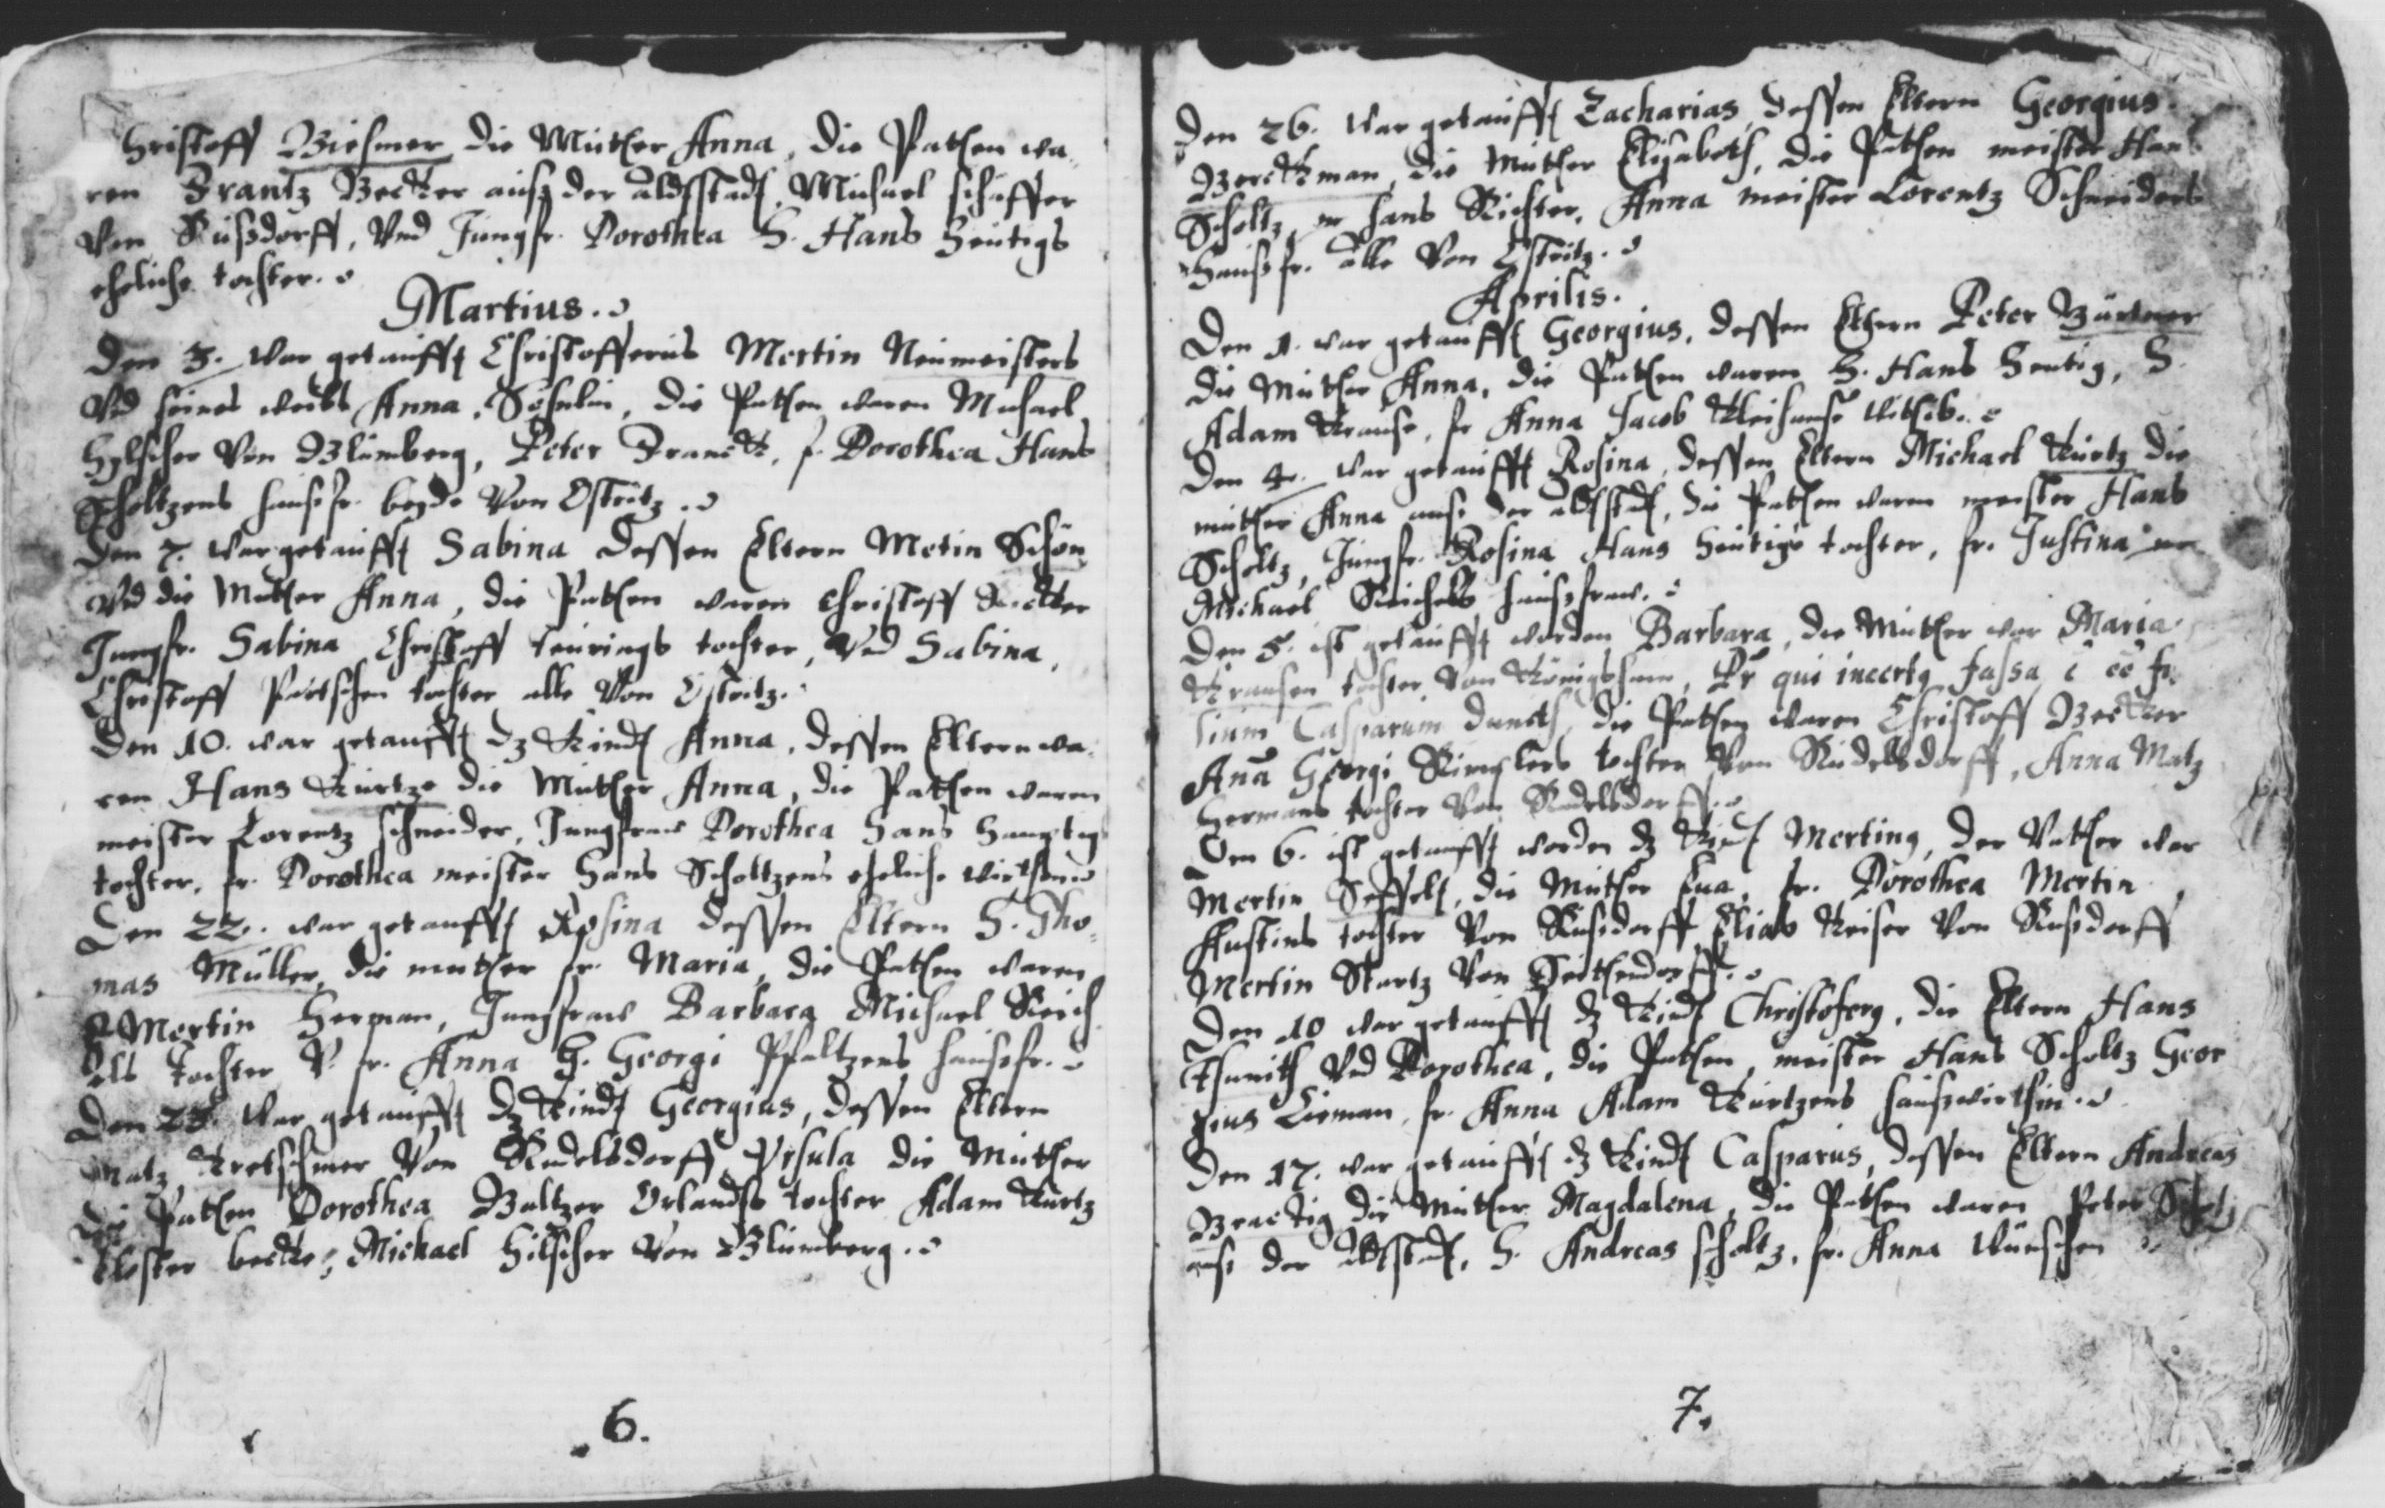 Christoff Biehmer die Mutter Anna, die Pathen wa-
ren Frantz Becker auß der Aldtstadt, Michael schäffer
Von Rußdorff, Vnd Jungfr. Dorothea H. Hans Heutigs
eheliche tochter.
Martius.
Den 3. War getaufft Christofferus Mertin Neumeisters
Vnd seines weibs Anna, Söhnlin, die Pathen waren Michael
Hylscher Von Blumberg, Peter Franck, f. Dorothea Hans
Scholtzens hausfr. beyde Von Ostritz.
Den 7. War getaufft Sabina dessen Eltern Metin Schön
Vnd die Mutter Anna, die Pathen waren Christoff
Jungfr. Sabina Christoff tochter, Vnd Sabina,
Christoff tochter alle Von Ostritz.
Den 10. war getaufft dz Kindt Anna, dessen Eltern wa-
ren Hans Kurtze die Mutter Anna, die Pathen waren
meister Lorentz schneider, Jungfraw Dorothea Hans
tochter, fr. Dorothea meister Hans Scholtzens eheliche wirthin
Den 22. war getaufft Rosina dessen Eltern H. Tho-
mas Müller, die mutter fr. Maria, die Pathen waren
Mertin Herman, Jungfraw Barbara Michael Reich
els tochter V. fr. Anna H. Georgi Pfaltzens hausfr.
Den 23. War getaufft dz Kindt Georgius, dessen Eltern
Matz Kretschmer Von Rudelsdorff Vrsula die Mutter
die Pathen Dorothea Baltzer Orlandts tochter Adam Kurtz
kloster becke, Michael Hilscher Von Blumberg.
6.
Den 26. War getaufft Zacharias, dessen Eltern Georgius
Berckman, die Mutter Elisabeth, die Pathen meister Hans
Scholtz, Hans Richter, Anna meister Lorentz Schneiders
Hausfr. alle Von Ostritz.
Aprilis.
Den 1. war getaufft Georgius, dessen Eltern Peter
die Mutter Anna, die Pathen waren H. Hans Heutig, H.
Adam Krause, fr Anna Jacob
Den 4. War getaufft Rosina, dessen Eltern Michael Kurtz die
mutter Anna auß der Aldtstadt, die Pathen waren meister Hans
Scholtz, Jungfr. Rosina Hans Heutigs tochter, fr. Justina
Michael Reichels hausfraw.
Den 5. ist getaufft worden Barbara, die Mutter war Maria
Krausen tochter Von Königshain, Pr qui incerty fassa
lium Casparum die Pathen waren Christoff Becker
Anā Georgi tochter Von Rudelsdorff, Anna Matz
Hermans tochter Von Rudelsdorff.
Den 6. ist getaufft worden dz Kindt Merting, der Vatter war
Mertin die Mutter Eua, fr. Dorothea Mertin
Austins tochter Von Rusdorff Elias Keiser Von Rusdorff
Mertin Von Seitendorff.
Den 10 war getaufft dz Kindt Christofery, die Eltern Hans
Vnd Dorothea, die Pathen, meister Hans Scholtz Geor
gius fr. Anna Adam Kurtzens hauswirthin.
Den 17. war getaufft dz Kindt Casparus, dessen Eltern Andreas
die Mutter Magdalena, die Pathen waren Peter
auß der Aldtstadt, H. Andreas scholtz, fr. Anna
7.